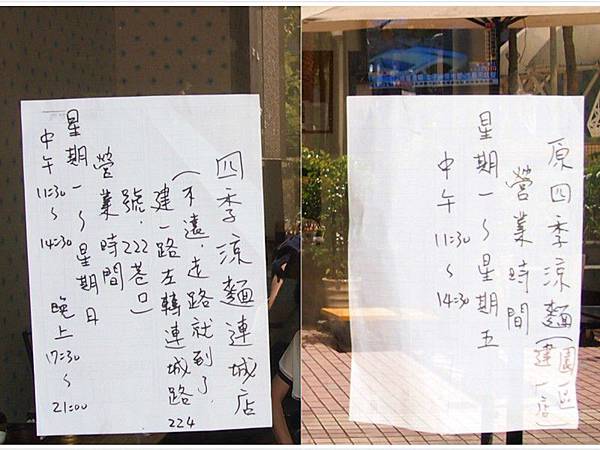 四季涼麵連城店
(不遠,走路就到了,
建一路左轉連城路224
號,222巷口)
營業時間
星期一~星期日
中午11:30~14:30 晚上17:30~21:00
原四季涼麵(園區建一店)
營業時間
星期一~星期五
中午 11:30~14:30